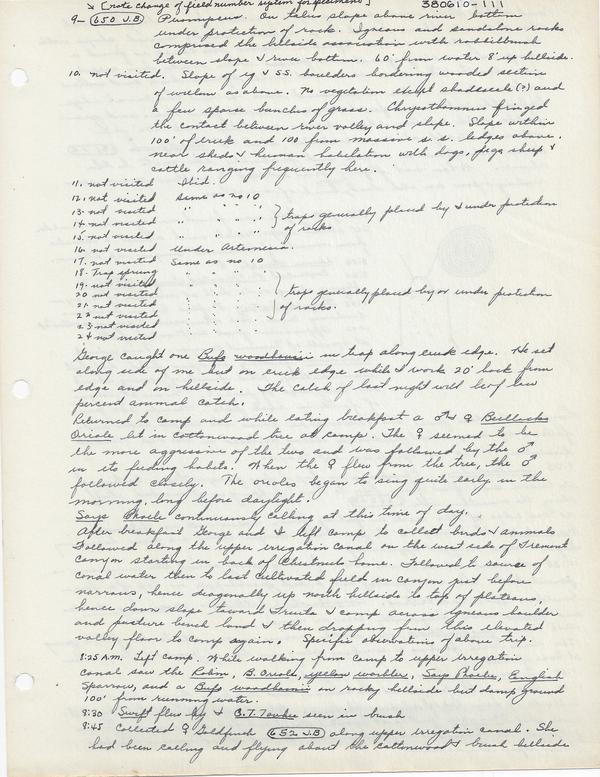 [note change of field number system for specimens]
380610-111
9- (650 J.B) P. ... On talus slope above river bottom
under protection of rock. Igneous and sandstone rocks
comprised the hillside association with rabbitbrush
between slope & river bottom. 60' from water 8' up hillside.
10. not visited. Slope of ig & s.s. boulders bordering wooded section
of willow as above. No vegetation except shadscale (?) and
a few sparse bunches of grass. Chrysothamnus fringed
the contact between river valley and slope. Slope within
100' of creek and 100 from massive s.s. ledges above.
near sheds & human habitation with dogs, pigs sheep &
cattle ranging frequently here.
11. not visited Ibid.
12. not visited same as no 10
13. not visited " " " "
14. not visited " " " " } traps generally placed by & under protection
15. not visited " " " " of rocks
16. not visited under Artemesia.
17. not visited Same as no 10
18. Trap sprung " " " "
19. not visited " " " "
20 not visited " " " " } traps generally placed by or under protection
21 not visited " " " " of rocks.
22 not visited " " " "
23 not visited " " " "
24 not visited
George caught one Bufo woodhousii in trap along creek edge. He set
along side of me but on creek edge while I work 20' back from
edge and on hillside. The catch of last night will be of low
percent animal catch.
Returned to camp and while eating breakfast a ♂ & ♀ Bullocks
Oriole lit in cottonwood tree at camp. The ♀ seemed to be
the more aggressive of the two and was followed by the ♂
in its feeding habits. When the ♀ flew from the tree, the ♂
followed closely. The orioles began to sing quite early in the
morning, long before daylight.
Says Phoebe continuously calling at this time of day.
After breakfast George and I left camp to collect birds & animals
Followed along the upper irregation canal on the west side of Fremont
Canyon starting in back of Chestnuts home. Followed to source of
canal water then to last cultivated field in canyon just before
narrows, hence diagonally up north hillside to top of plateau,
hence down slope toward Fruita & camp across igneous boulder
and pasture bench land & then dropping from this elevated
valley floor to camp again. Specific observations of above trip.
8:25 A.M. Left camp. While walking from camp to upper irregation
canal saw the Robin, B. Oriole, yellow warbler, Says Phoebe, English
Sparrow, and a Bufo woodhousii on rocky hillside but damp ground
100' from running water.
8:30 Swift flew by & G.T. Towhee seen in bush
8:45 Collected ♀ Goldfinch (652 J.B) along upper irregation canal. She
had been calling and flying about the cottonwood & brush hillside